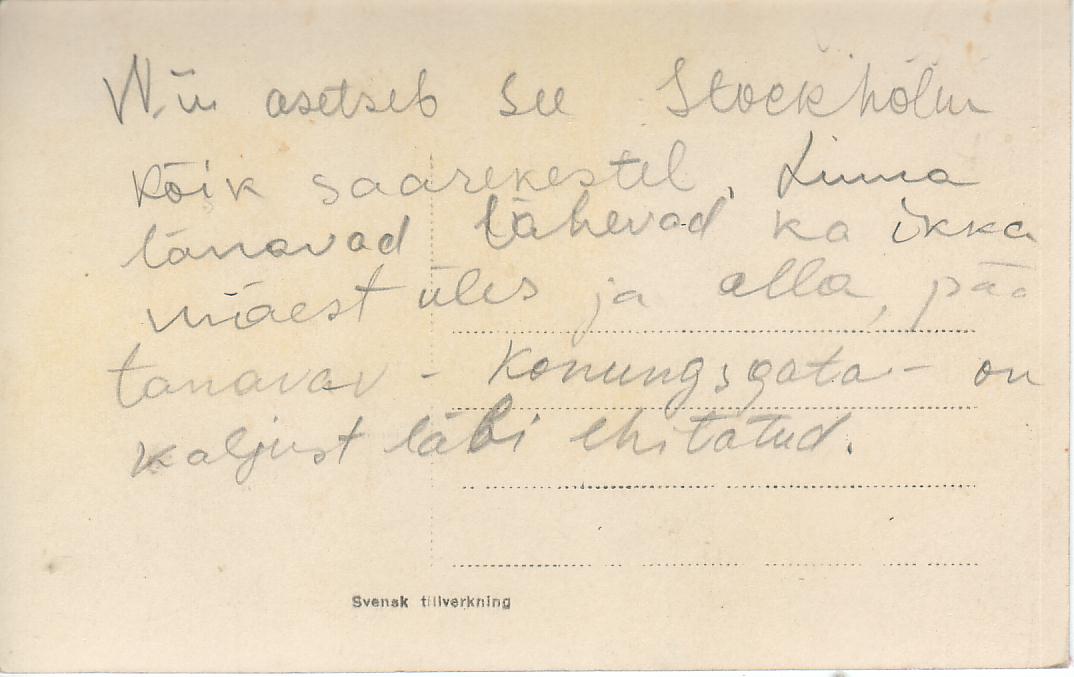 Nii asetseb see Stockholm
kõik saarekestel, Linna
tänavad lähevad ka ikka
mäest üles ja alla, pää
tänavav - Konungsgata - on
kaljust läbi ehitatud.
Svensk tillverkning